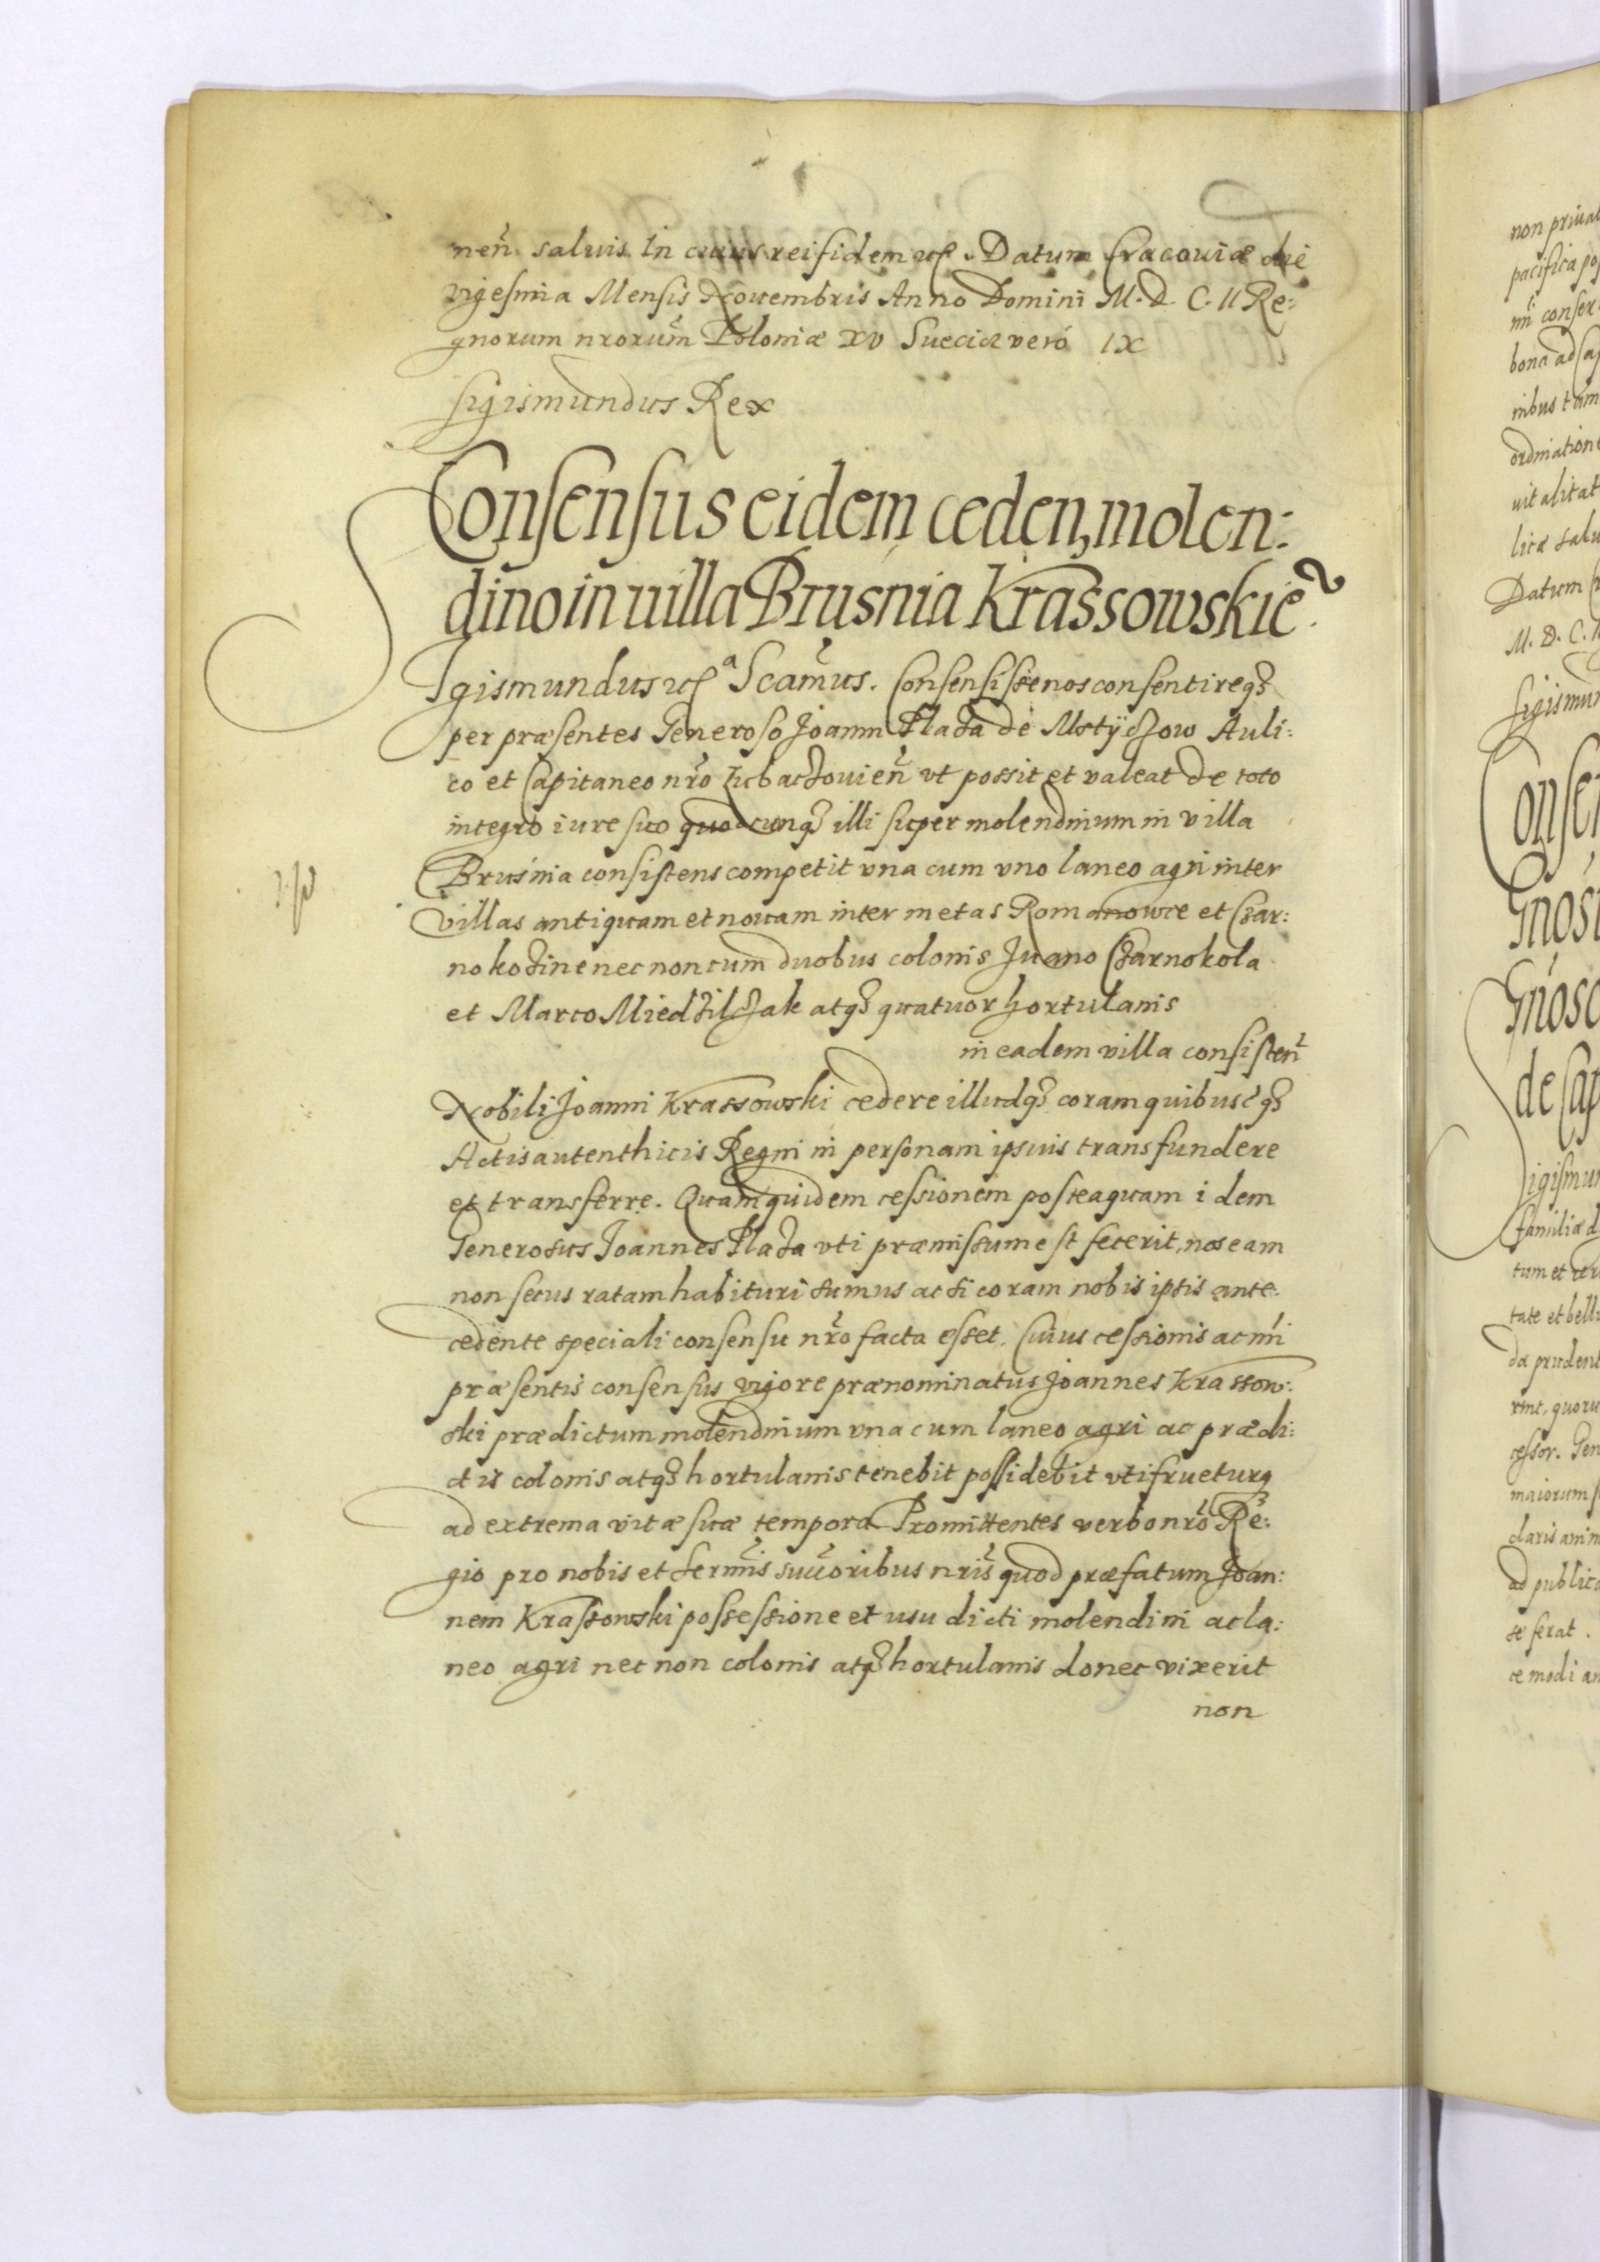 neñ saluis. In cuius rei fidem etc. Datum Cracouiæ die
vigesima Mensis Nouembris Anno Domini M. D. C. II Re:
gnorum nrorum̃ Poloniæ XV Sueciæ veró IX
Sigismundus Rex
Consensus eidem ceden, molen:
dino in uilla Brusnia Krassowskie
Sigismundus etc.ª Scam̃us. Consensisse nos consentireq3
per præsentes Generoso Joanni Plaza de Mstÿczow Auli:
co et Capitaneo nro Lubaczouieñ vt possit et valeat de toto
integro iure suo quodcunq3 illi super molendinum in villa
Brusnia consistens competit vna cum vno laneo agri inter
villas antiquam et nouam inter metas Romanowce et Czar:
nokozine nec non cum duobus colonis Juano Czarnokola
et Marco Miedzilczak atq3 quatuor hortulanis
in eadem villa consisteñ
Nobili Joanni Krassowski cedere illudq3 coram quibusc̃q3
Actis autenthicis Regni in personam ipsuis transfundere
et transferre. Quam quidem cessionem posteaquam idem
Generosus Joannes Plaza vti præmissum est fecerit, nos eam
non secus ratam habituri sumus ac si coram nobis ipsis ante:
cedente speciali consensu nro facta esset. Cuius cessionis ac nri
præsentis consensus vigore prænominatus Joannes Krassow:
ski prædictum molendinum vna cum laneo agri ac prædi:
ctis colonis atq3 hortulanis tenebit possidebit vtifrueturq
ad extrema vitæ suæ tempora Promittentes verbo nro Re:
gio pro nobis et serm̃is succ̃oribus nris̃ quod præfatum Joan:
nem Krassowski possessione et usu dicti molendini ac la:
neo agri nec non colonis atq3 hortulanis donec vixerit
non